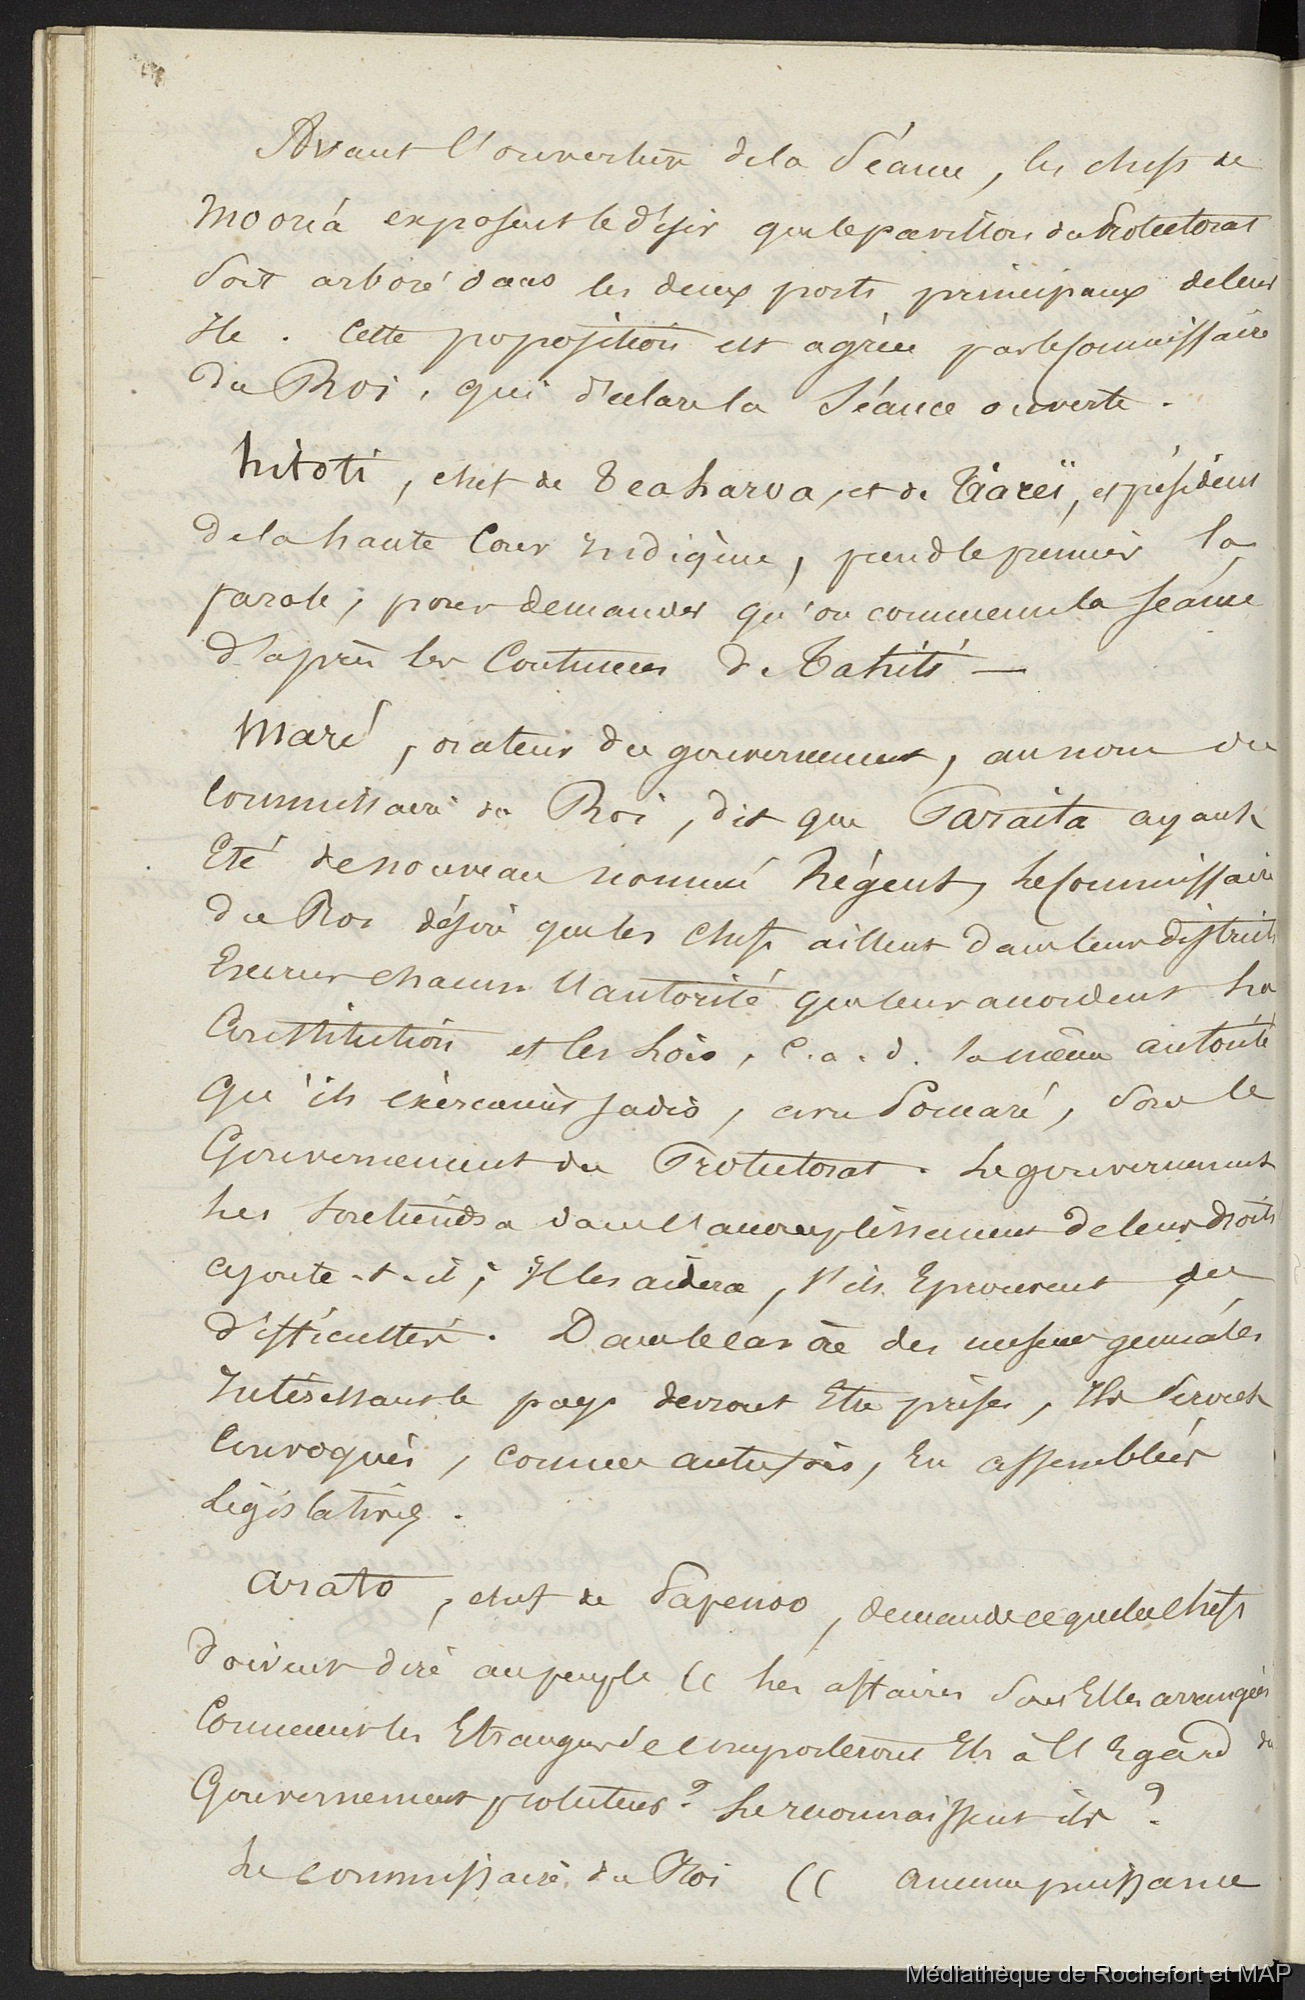 Avant l'ouverture de la Séance, les chefs de
Mooréa exposent le désir que le pavillon du Protectorat
Soit arboré dans les deux ports principaux de leur
Ile. Cette poposition est agréée par le Commissaire
du Roi, qui déclare la Séance ouverte.
hitoti, chef de Teaharoa, et de Tiareï, et président
de la haute Cour Indigène, prend le premier la
parole, pour demander qu'on commence la séance
d'après les Coutumes de Tahiti —
Maré, orateur du gouvernement, au nom du
Commissaire du Roi, dit que Paraita ayant
Eté de nouveau nommé Régent, le Commissaire
du Roi désire que les chefs aillent dans leurs districts
Exercer chacun l'autorité que leur accordent la
Constitution et les Lois, c.a.d. la même autorité
qu'ils exerçaient jadis, avec Pomaré, sous le
Gouvernement du Protectorat. Le gouvernement
les soutiendra dans l'accomplissement de leurs droits
ajoute-t-il; Il les aidera, s'ils Eprouvent des
difficultés. Dans le cas où des mesures générales
Intéressant le pays devront Etre prises, Ils Seront
Convoqués, comme autrefois, En assemblées
Législatives.
Arato, chef de Papenoo, demande ce que les chefs
doivent dire au peuple (( Les affaires sont Elles arrangées
Comment les Etrangers se comporteront Ils à l'Egard du
Gouvernement protecteur? Le reconnaissent ils?
Le commissaire du Roi (( Aucune puissance
Médiathèque de Rochefort et MAP